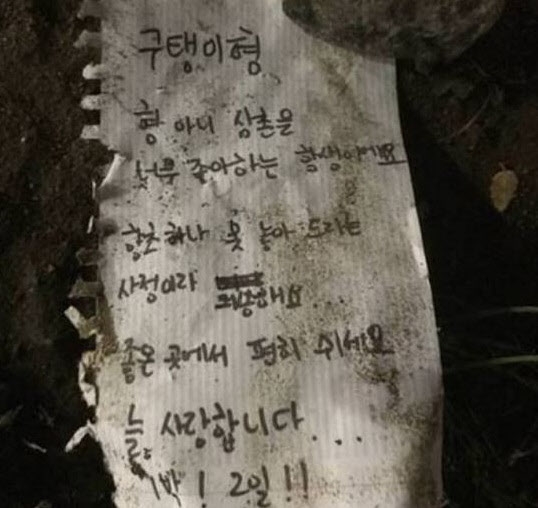 구탱이형
형 아니 삼촌을
너무 좋아하는 학생이에요
향초하나 못 놓아 드리는
사정이라 죄송해요...
좋은 곳에서 편히 쉬세요
늘, 사랑합니다...
1박! 2일!!